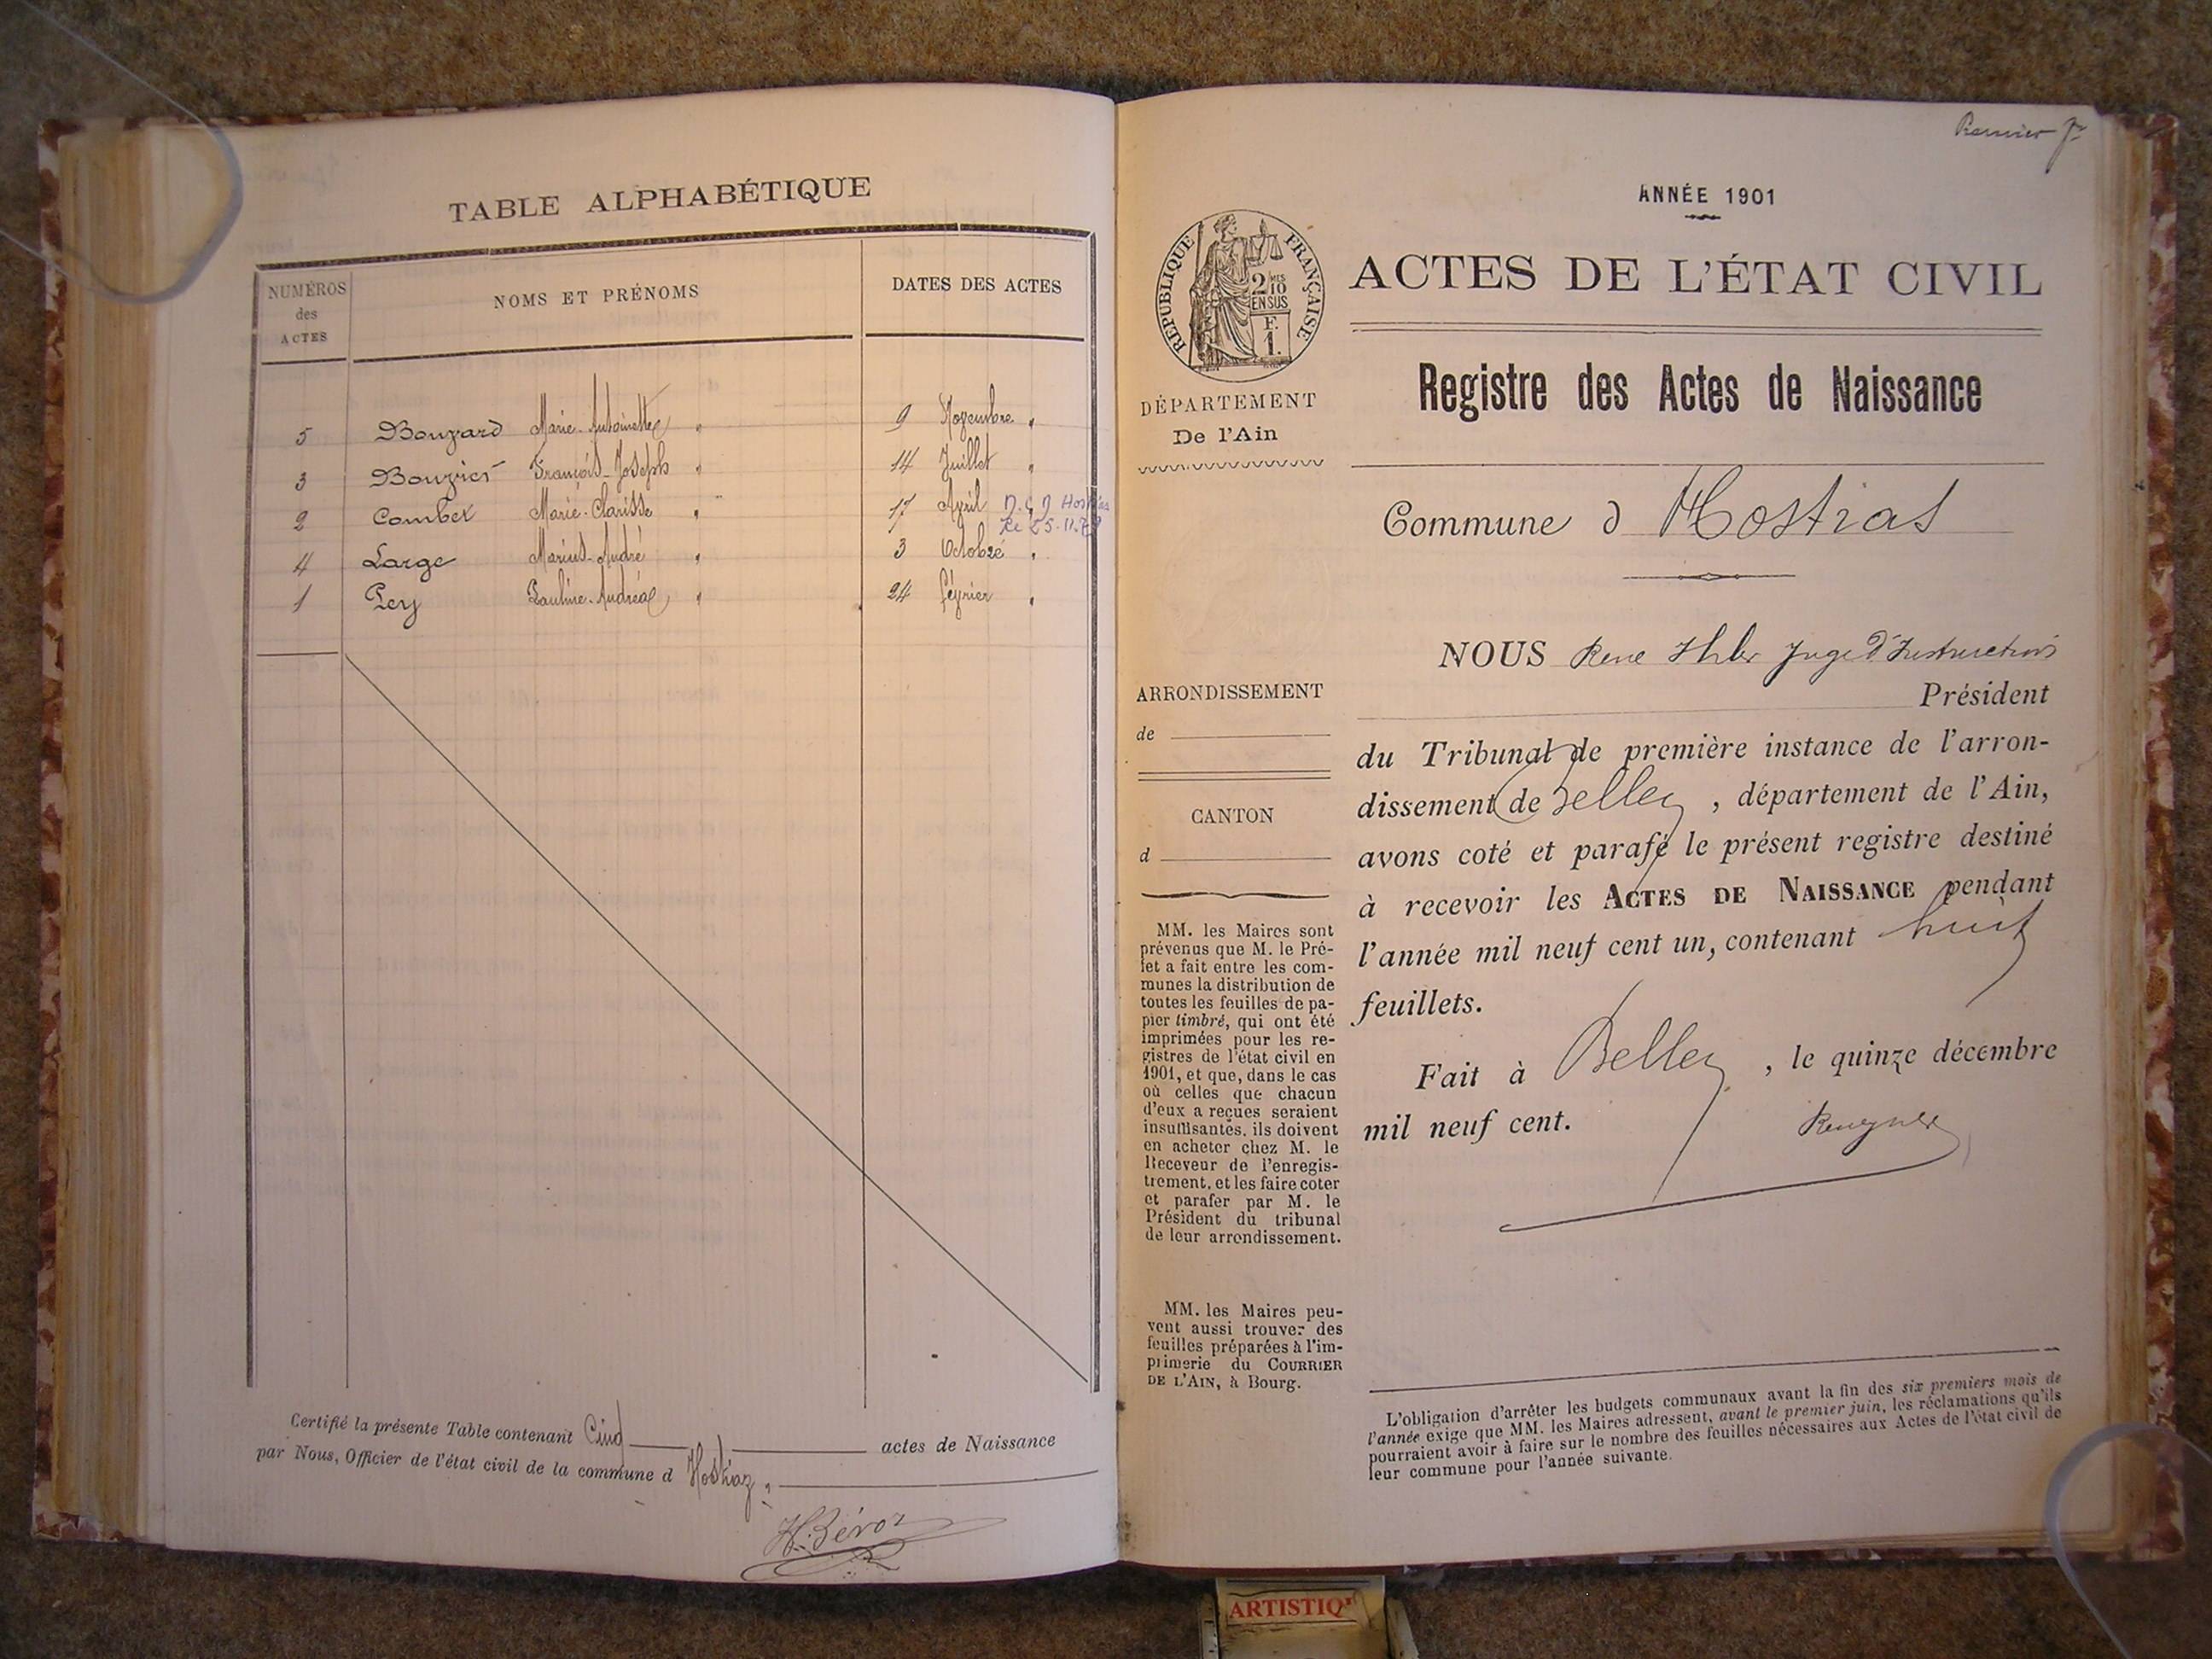 TABLE ALPHABÉTIQUE
NUMÉROS
des
ACTES
NOMS ET PRÉNOMS
DATES DES ACTES
5 Bouvard Marie-Antoinette " 9 Novembre "
3 Bouvier François-Joseph " 14 Juillet "
2 Combet Marie-Clarisse " 17 Avril "
4 Large Marius-André " 3 Octobre "
1 Pey Pauline-Andréa " 24 février "
Certifié la présente Table contenant Cinq actes de Naissance
par Nous, Officier de l'état civil de la commune d Hostiaz.
Premier
ANNÉE 1901
RÉPUBLIQUE FRANÇAISE
2 MES
10
EN SUS
F.
1.
ACTES DE L'ÉTAT CIVIL
Registre des Actes de Naissance
DÉPARTEMENT
De l'Ain
Commune d Hostias
NOUS René Juge d'Instruction
Président
du Tribunal de première instance de l'arron-
dissement de Belley, département de l'Ain,
avons coté et parafé le présent registre destiné
à recevoir les ACTES DE NAISSANCE pendant
l'année mil neuf cent un, contenant huit
feuillets.
Fait à Belley, le quinze décembre
mil neuf cent.
ARRONDISSEMENT
de
CANTON
d
MM. les Maires sont
prévenus que M. le Pré-
fet a fait entre les com-
munes la distribution de
toutes les feuilles de pa-
pier timbré, qui ont été
imprimées pour les re-
gistres de l'état civil en
1901, et que, dans le cas
où celles que chacun
d'eux a reçues seraient
insuffisantes, ils doivent
en acheter chez M. le
Receveur de l'enregis-
trement, et les faire coter
et parafer par M. le
Président du tribunal
de leur arrondissement.
MM. les Maires peu-
vent aussi trouver des
feuilles préparées à l'im-
primerie du COURRIER
DE L'AIN, à Bourg.
L'obligation d'arrêter les budgets communaux avant la fin des six premiers mois de
l'année exige que MM. les Maires adressent, avant le premier juin, les réclamations qu'ils
pourraient avoir à faire sur le nombre des feuilles nécessaires aux Actes de l'état civil de
leur commune pour l'année suivante.
ARTISTIQ